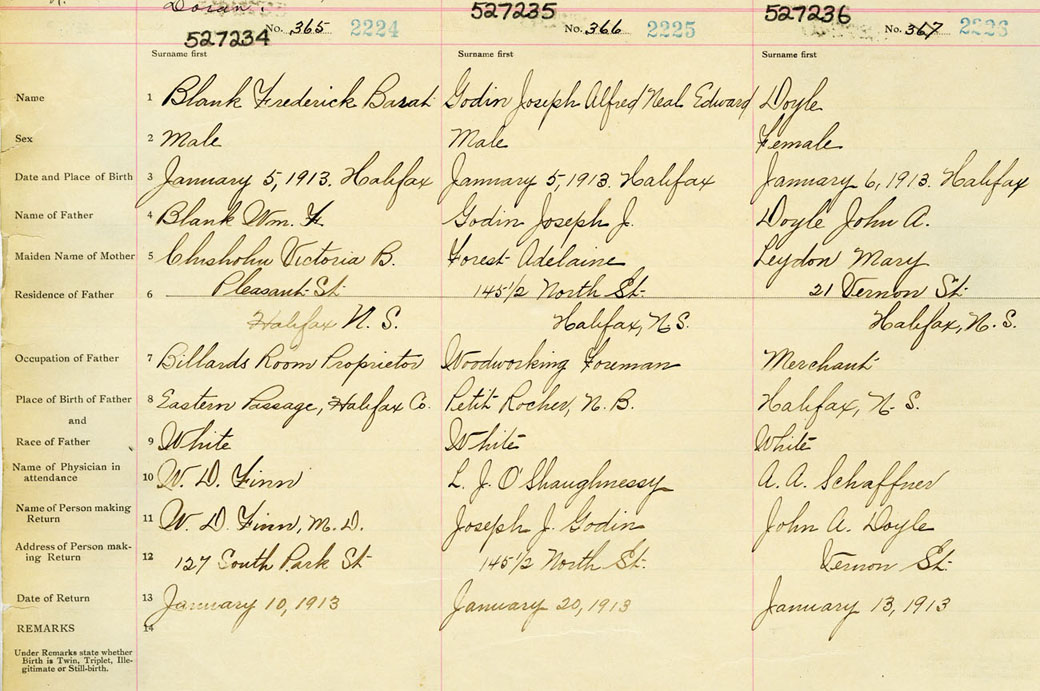 Doran.
527234 No. 365 2224
527235 No. 366 2225
527236 No. 367 2226
Surname first Surname first Surname first
Name 1 Blank Frederick Basat Godin Joseph Alfred Neal Edward Doyle
Sex 2 Male Male Female
Date and Place of Birth 3 January 5, 1913. Halifax January 5, 1913. Halifax January 6, 1913. Halifax
Name of Father 4 Blank Wm. F. Godin Joseph J. Doyle John A.
Maiden Name of Mother 5 Chisholm Victoria B. Forest Adelaine Leydon Mary
Residence of Father 6 Pleasant St. 145 1/2 North St. 21 Vernon St.
Halifax N. S. Halifax, N. S. Halifax, N. S.
Occupation of Father 7 Billards Room Proprietor Woodworking Foreman Merchant
Place of Birth of Father 8 Eastern Passage, Halifax Co. Petit Rocher, N. B. Halifax, N. S.
and
Race of Father 9 White White White
Name of Physician in
attendance 10 W. D. Finn L. J. O'Shaughnessy A. A. Schaffner
Name of Person making
Return 11 W. D. Finn, M. D. Joseph J. Godin John A. Doyle
Address of Person mak-
ing Return 12 127 South Park St. 145 1/2 North St. Vernon St.
Date of Return 13 January 10, 1913 January 20, 1913 January 13, 1913
REMARKS 14
Under Remarks state whether
Birth is Twin, Triplet, Ille-
gitimate or Still-birth.